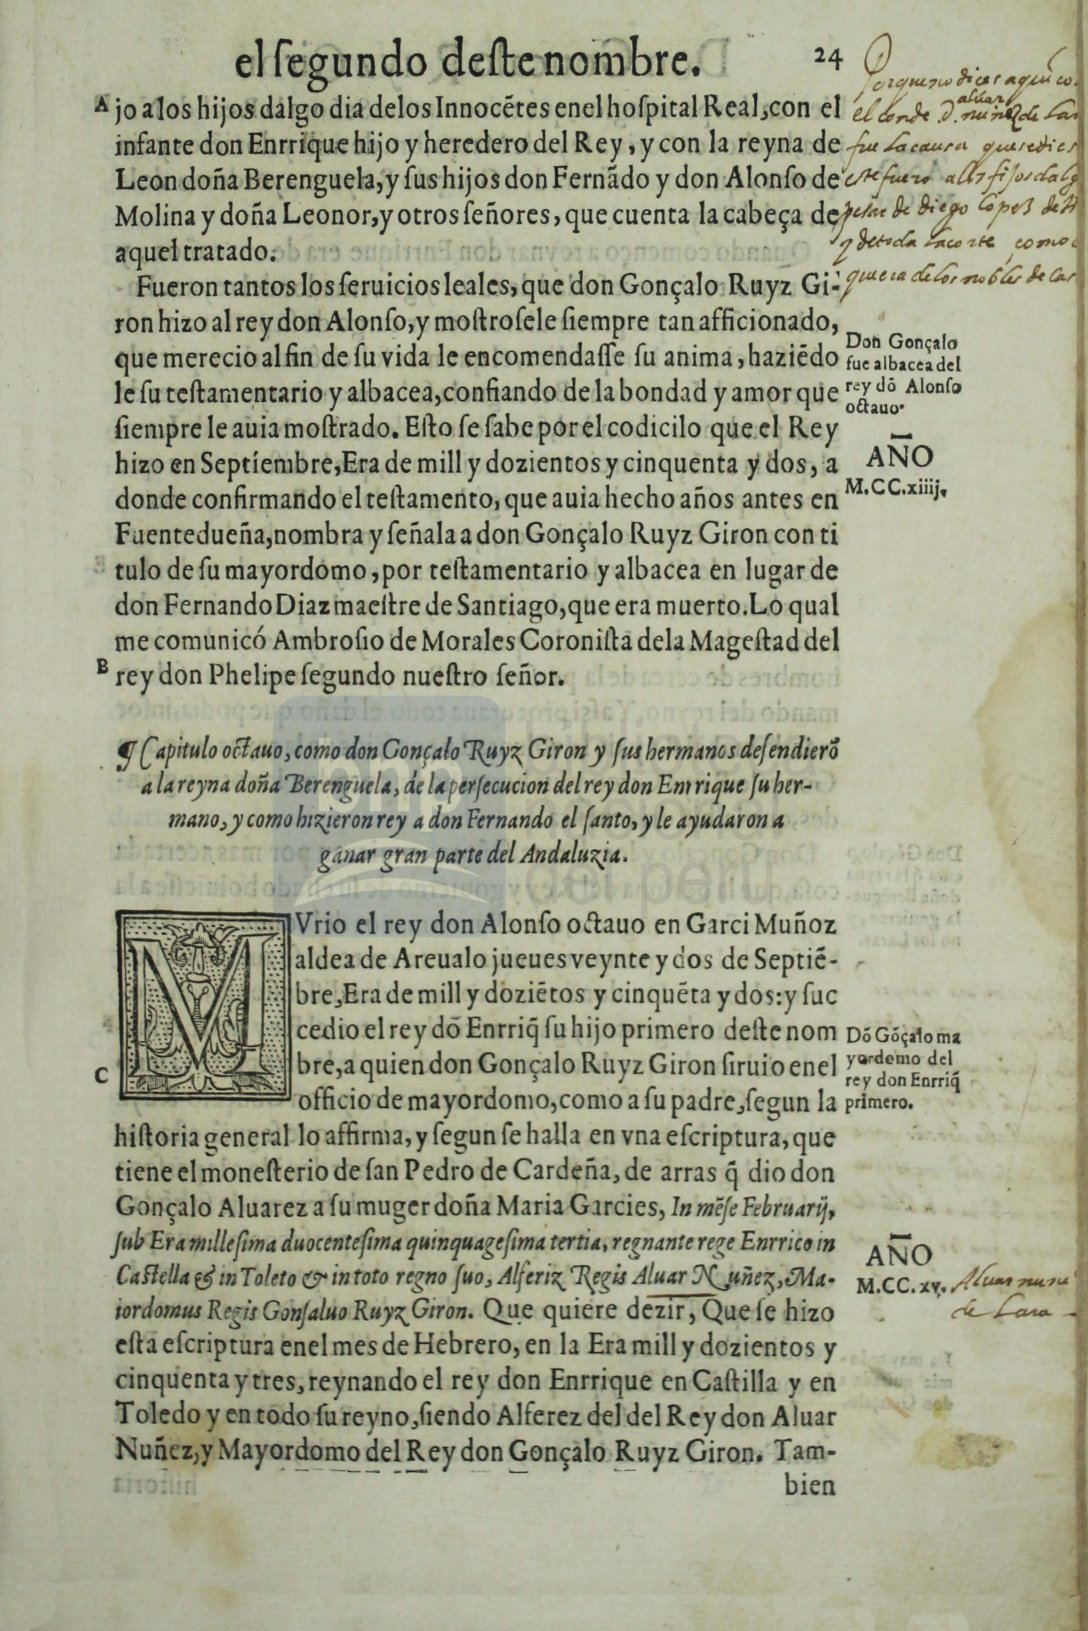 el ſegundo deſte nombre.
24
A
jo a los hijos dalgo dia delos Innocẽtes enel hoſpital Real, con el
infante don Enrrique hijo y heredero del Rey, y con la reyna de
Leon doña Berenguela, y ſus hijos don Fernãdo y don Alonſo de
Molina y doña Leonor, y otros ſeñores, que cuenta la cabeça de
aquel tratado.
Fueron tantos los ſeruicios leales, que don Gonçalo Ruyz Gi-
ron hizo al rey don Alonſo, y moſtroſele ſiempre tan afficionado,
que merecio al fin de ſu vida le encomendaſſe ſu anima, haziẽdo
le ſu teſtamentario y albacea, confiando de la bondad y amor que
ſiempre le auia moſtrado. Eſto ſe ſabe por el codicilo que el Rey
hizo en Septiembre, Era de mill y dozientos y cinquenta y dos, a
donde confirmando el teſtamento, que auia hecho años antes en
Fuentedueña, nombra y ſeñala a don Gonçalo Ruyz Giron con ti
tulo de ſu mayordomo, por teſtamentario y albacea en lugar de
don Fernando Diaz maeſtre de Santiago, que era muerto. Lo qual
me comunicó Ambroſio de Morales Coroniſta dela Mageſtad del
B
rey don Phelipe ſegundo nueſtro ſeñor.
Porque no dice aqui
el conde d. aluar nuñez de Lara
fue la causa que
este fuero a los fijos dalgo
pesar de diego lopez de
y de toda la corte, como
quiera de los nobles de cas
Don Gonçalo
fue albacea del
rey dõ Alonſo
octauo.
AÑO
M.CC.xiiij.
¶ Capitulo octauo, como don Gonçalo Ruyz Giron y ſus hermanos defendierõ
a la reyna doña Berenguela, de la perſecucion del rey don Enrrique ſu her-
mano, y como hizieron rey a don Fernando el ſanto, y le ayudaron a
ganar gran parte del Andaluzia.
MVrio el rey don Alonſo octauo en Garci Muñoz
aldea de Areualo jueues veynte y dos de Septiẽ-
bre, Era de mill y doziẽtos y cinquẽta y dos: y ſuc
cedio el rey dõ Enrriq̃ ſu hijo primero deſte nom
bre, a quien don Gonçalo Ruyz Giron ſiruio enel
C
officio de mayordomo, como a ſu padre, ſegun la
hiſtoria general lo affirma, y ſegun ſe halla en vna eſcriptura, que
tiene el moneſterio de ſan Pedro de Cardeña, de arras q̃ dio don
Gonçalo Aluarez a ſu muger doña Maria Garcies, In mẽſe Februarij,
ſub Era milleſima duocenteſima quinquageſima tertia, regnante rege Enrrico in
Caſtella & in Toleto & in toto regno ſuo, Alferiz Regis Aluar Nuñez, Ma-
iordomus Regis Gonſaluo Ruyz Giron. Que quiere dezir, Que ſe hizo
eſta eſcriptura enel mes de Hebrero, en la Era mill y dozientos y
cinquenta y tres, reynando el rey don Enrrique en Caſtilla y en
Toledo y en todo ſu reyno, ſiendo Alferez del del Rey don Aluar
Nuñez, y Mayordomo del Rey don Gonçalo Ruyz Giron. Tam-
bien
Dõ Gõçalo ma
yordomo del
rey don Enrriq̃
primero.
AÑO
M.CC.xv.
Aluar nuñe
de Lara
del perú